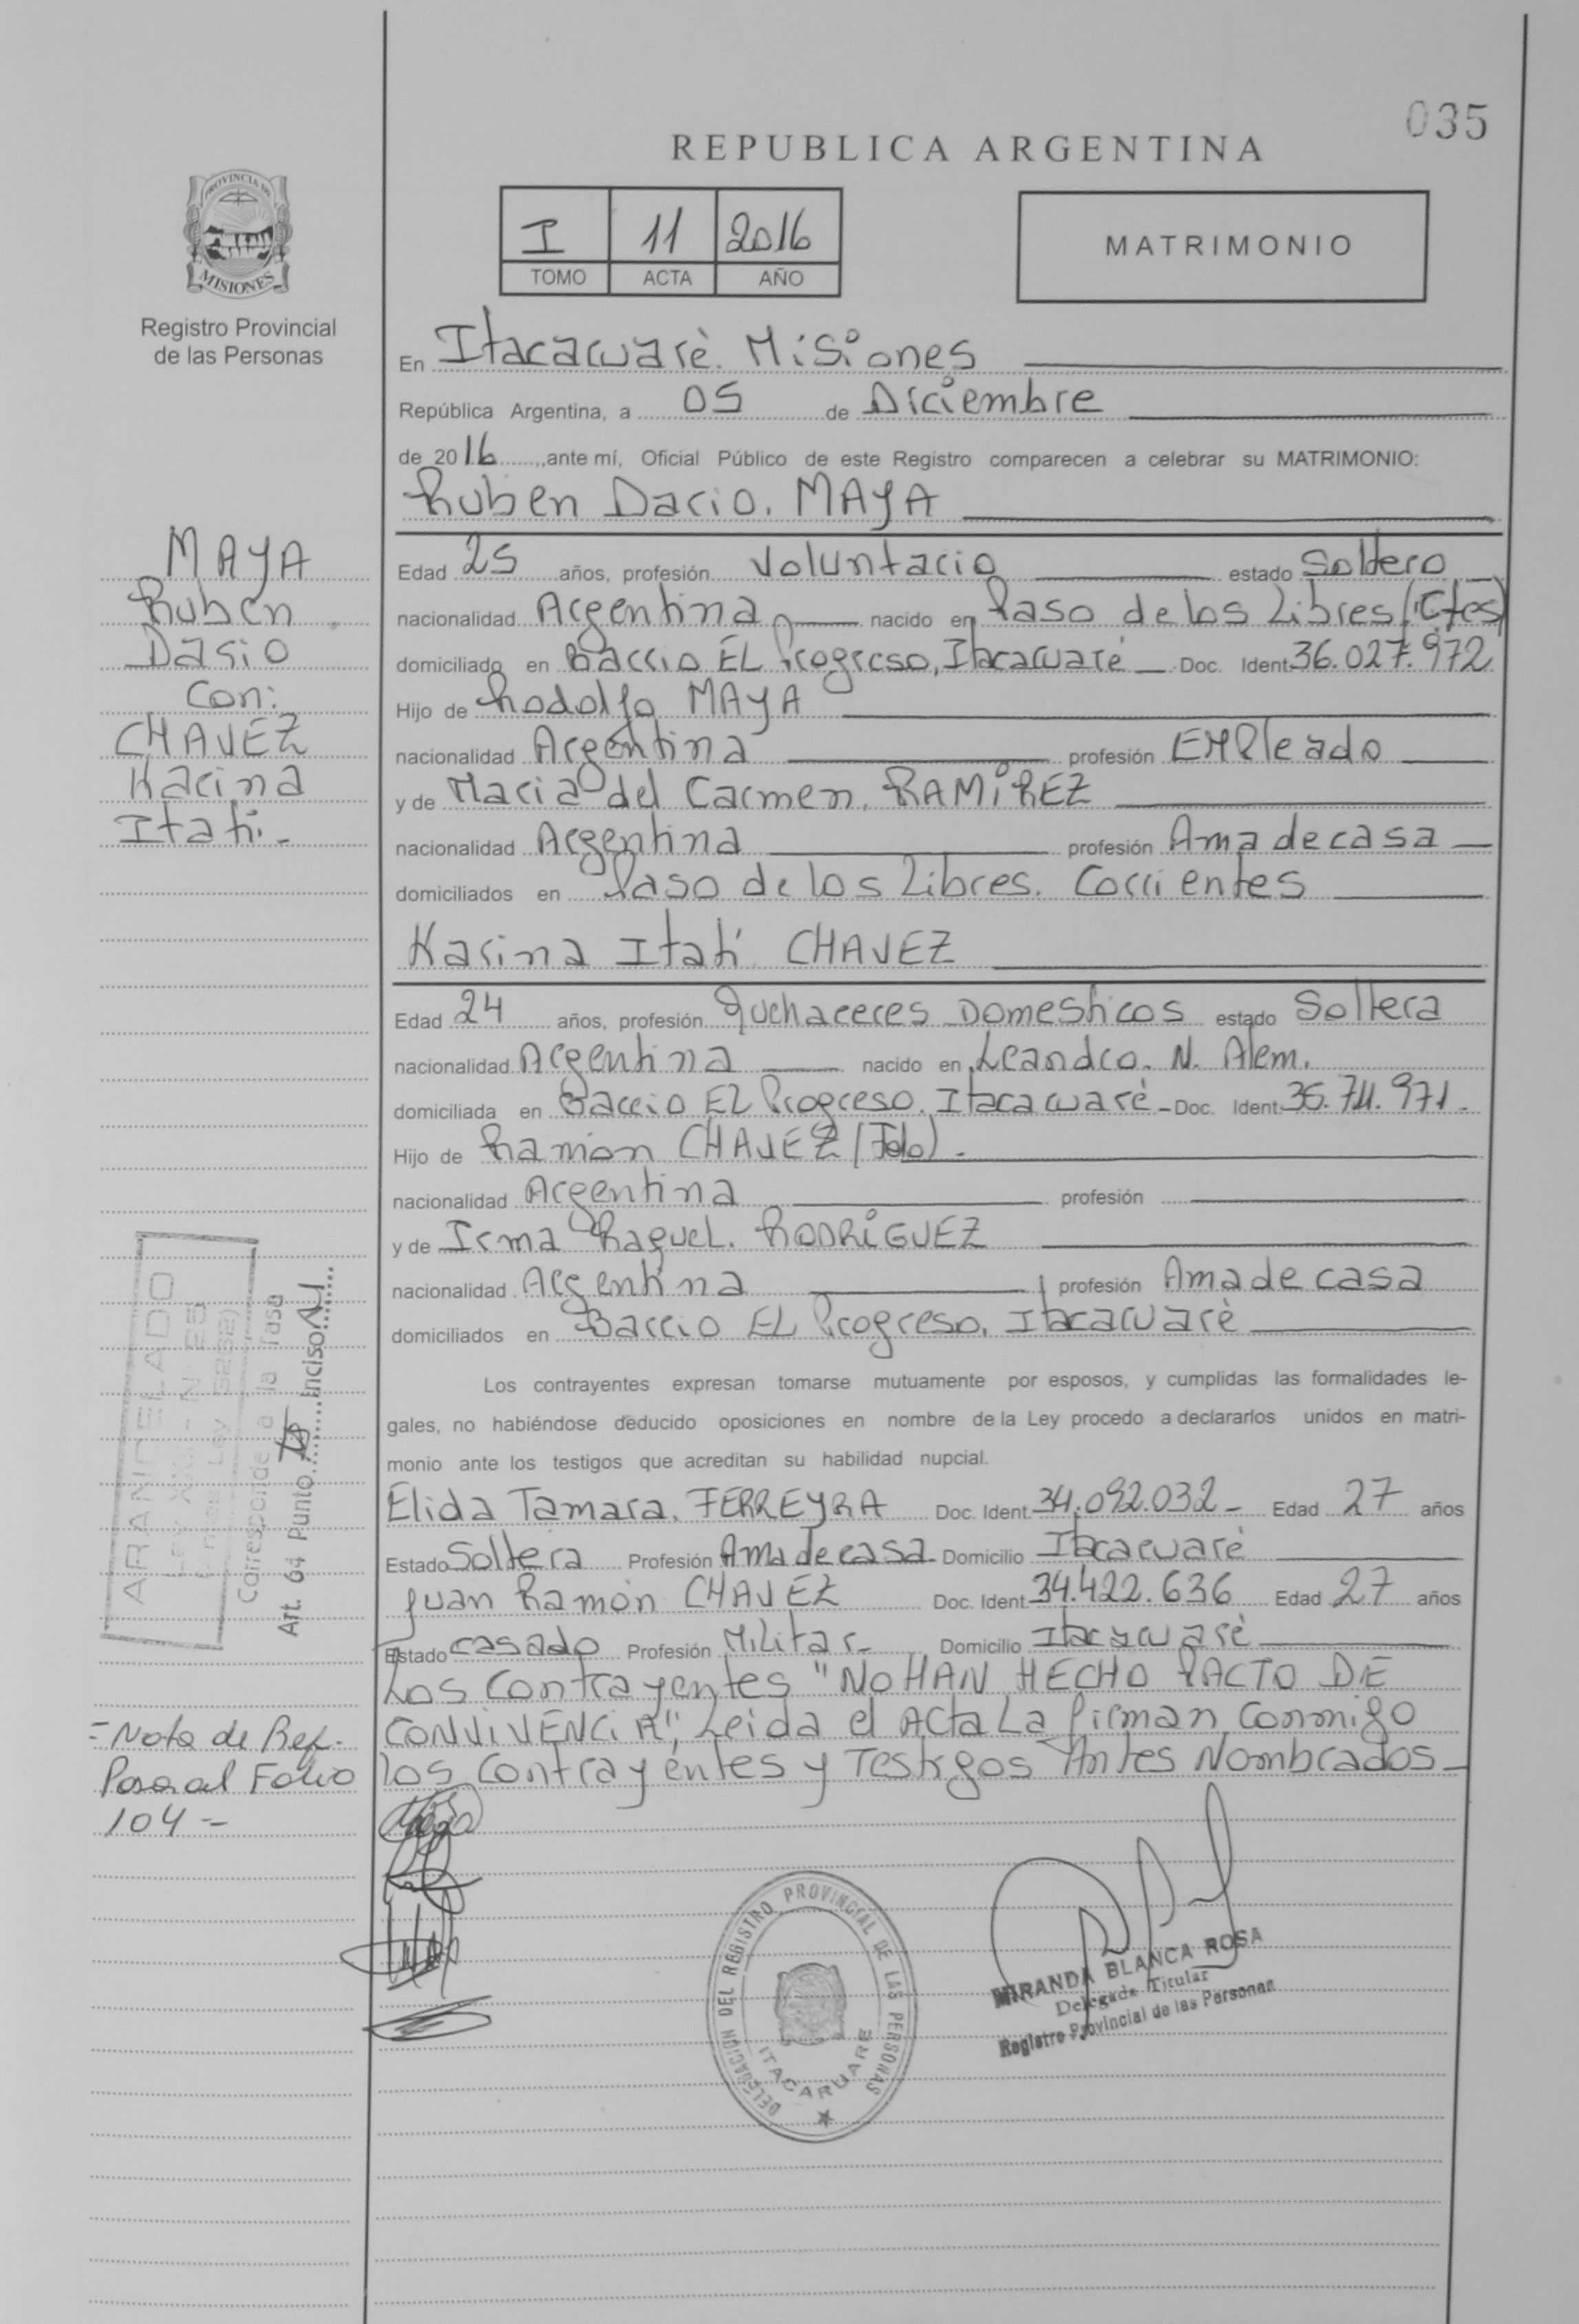 035
REPUBLICA ARGENTINA
I 11 2016
TOMO ACTA AÑO
MATRIMONIO
PROVINCIA DE
MISIONES
Registro Provincial
de las Personas
En Itacaruaré. Misiones
República Argentina, a 05 de Diciembre
de 2016, ante mí, Oficial Público de este Registro comparecen a celebrar su MATRIMONIO:
Ruben Dario. MAYA
Edad 25 años, profesión Voluntario estado Soltero
nacionalidad Argentina nacido en Paso de los Libres (Ctes)
domiciliado en Barrio EL Progreso, Itacaruaré Doc. Ident. 36.027.972
Hijo de Rodolfo MAYA
nacionalidad Argentina profesión EMPleado
y de Maria del Carmen. RAMÍREZ
nacionalidad Argentina profesión Ama de casa
domiciliados en Paso de los Libres. Corrientes
Karina Itatí CHAVEZ
Edad 24 años, profesión Quehaceres Domesticos estado Soltera
nacionalidad Argentina nacido en Leandro. N. Alem.
domiciliada en Barrio EL Progreso. Itacaruaré - Doc. Ident.
Hijo de Ramón CHAVEZ
nacionalidad Argentina profesión
y de Irma Raquel. RODRÍGUEZ
nacionalidad Argentina profesión Ama de casa
domiciliados en Barrio EL Progreso, Itacaruaré
Los contrayentes expresan tomarse mutuamente por esposos, y cumplidas las formalidades le-
gales, no habiéndose deducido oposiciones en nombre de la Ley procedo a declararlos unidos en matri-
monio ante los testigos que acreditan su habilidad nupcial.
Elida Tamara. FERREYRA Doc. Ident. 34.092.032- Edad 27 años
Estado Soltera Profesión Ama de casa Domicilio Itacaruaré
Juan Ramón CHAVEZ Doc. Ident. 34.422.636 Edad 27 años
Estado casado Profesión Militar- Domicilio Itacaruaré
Los Contrayentes "NO HAN HECHO PACTO DE
CONVIVENCIA", Leida el Acta La firman conmigo
los contrayentes y Testigos Antes Nombrados-
MAYA
Ruben
Dario
Con:
CHAVEZ
Karina
Itatí.-
ARANCELADO
Corresponde a la Tasa
Art. 64 Punto Inciso
=Nota de Ref.
Pasa al Folio
104-
DELEGACION DEL REGISTRO PROVINCIAL DE LAS PERSONAS
ITACARUARE
MIRANDA BLANCA ROSA
Delegada Titular
Registro Provincial de las Personas